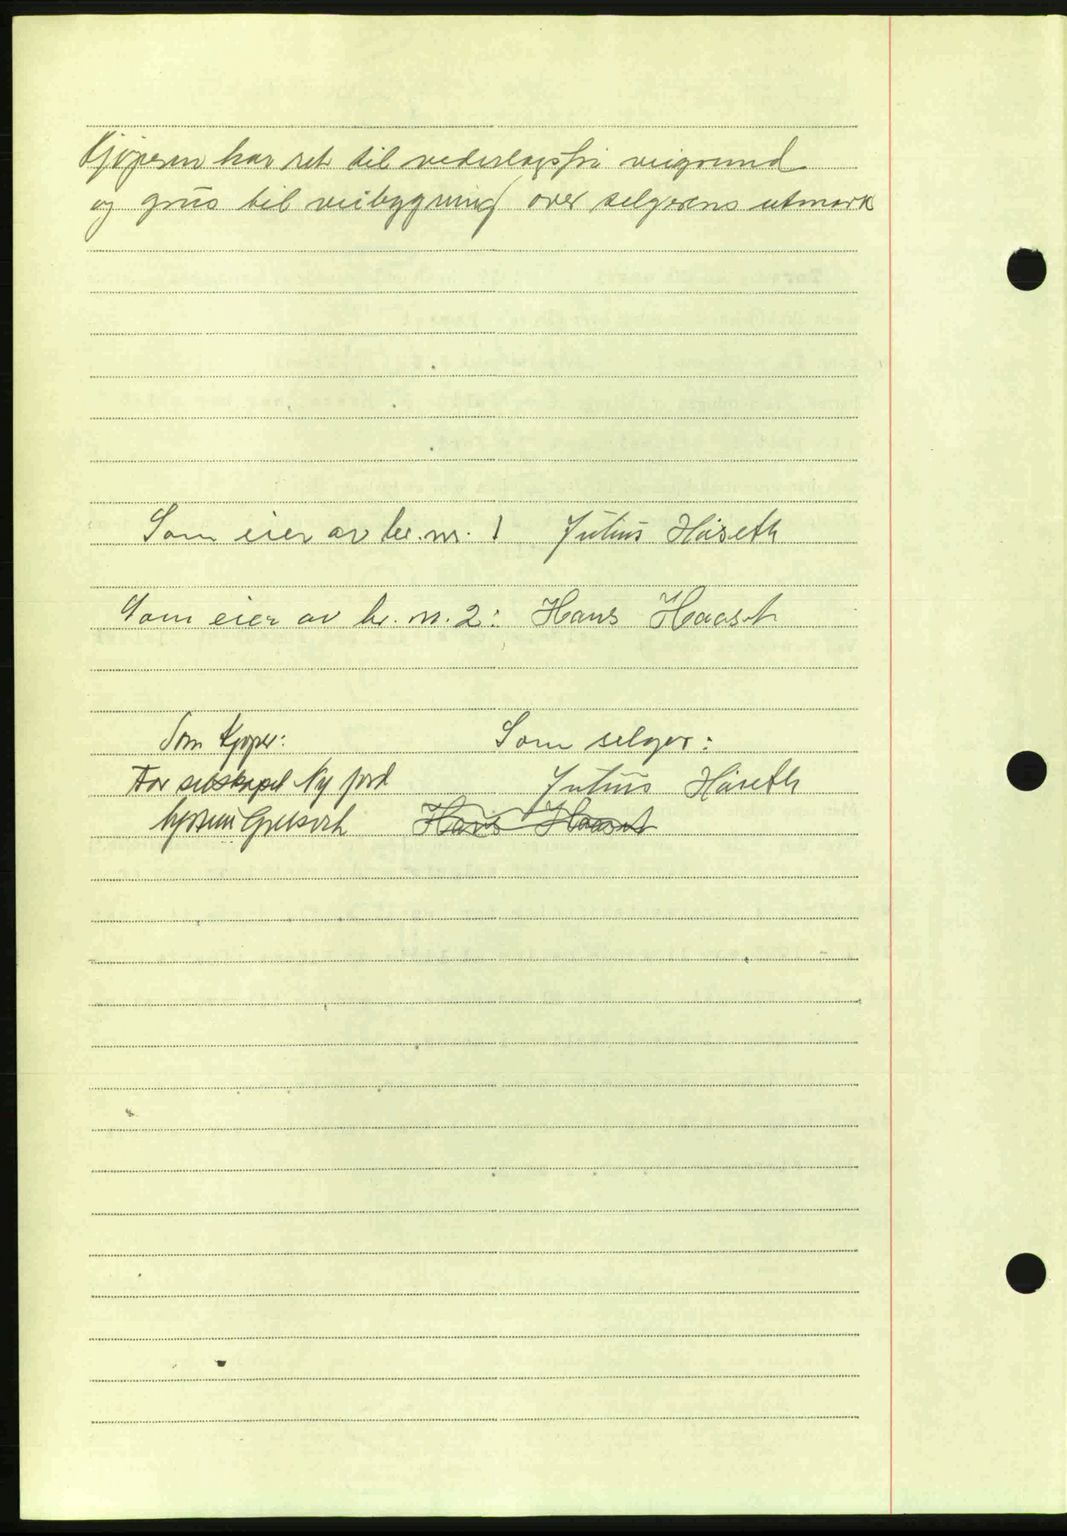 Kjøperen har ret til vederlagsfri veigrund
og grus til veibygning over selgerens utmark
Som eier av br. nr. 1 Julius Håseth
Som eier av br. nr. 2: Hans Haaset
Som Kjøper: Som selger:
For selskapet Ny jord Julius Håseth
Hans Haaset